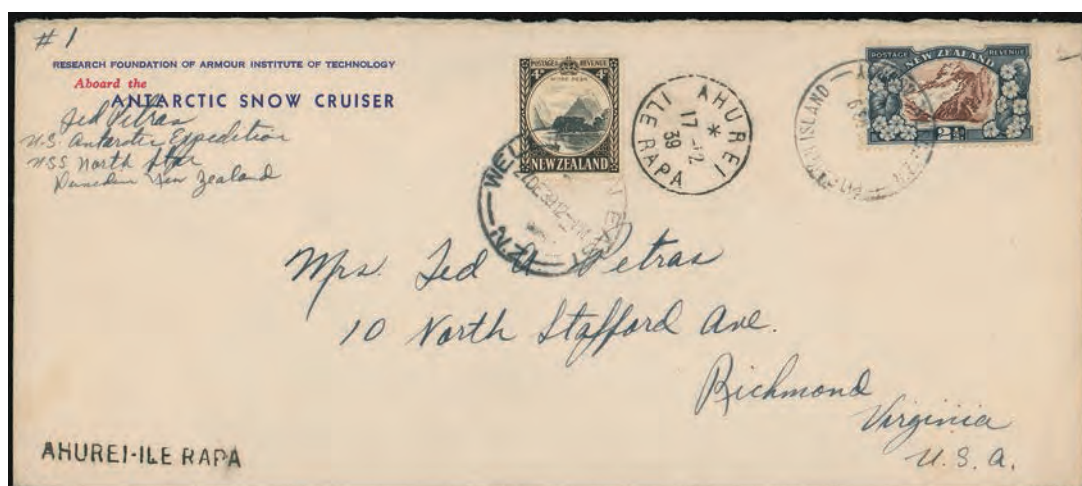 # 1
RESEARCH FOUNDATION OF ARMOUR INSTITUTE OF TECHNOLOGY
Aboard the
ANTARCTIC SNOW CRUISER
Ted Petras
U.S. Antarctic Expedition
USS North Star
Dunedin New Zealand
POSTAGE & REVENUE
4D 4D
MITRE PEAK
NEW ZEALAND
AHUREI
*
17-12
39
ILE RAPA
POSTAGE REVENUE
NEW ZEALAND
2½
PITCAIRN ISLAND
WEL EAST
22DE39 12
N.Z.
Mrs. Ted A Petras
10 North Stafford Ave.
Richmond
Virginia
U.S.A.
AHUREI-ILE RAPA